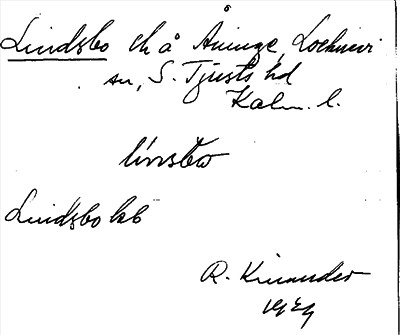 Lindsbo lh å Åninge, Locknevi
sn, S. Tjusts hd
Kalm. l.
Lindsbo kb
R. Kinander